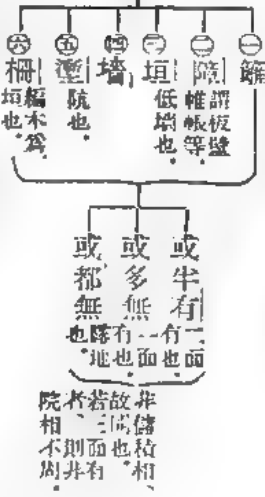 ㊀籬
㊁障 謂板壁
帷帳等.
㊂垣 低墻也.
㊃墻
㊄壍 阬也.
㊅柵 編木爲
垣也.
或半有 二面
有也.
或多無 一面
有也.
或都無 露地
也.
非儲積相.
故同也.
若三面有
者.則非
院相不周.